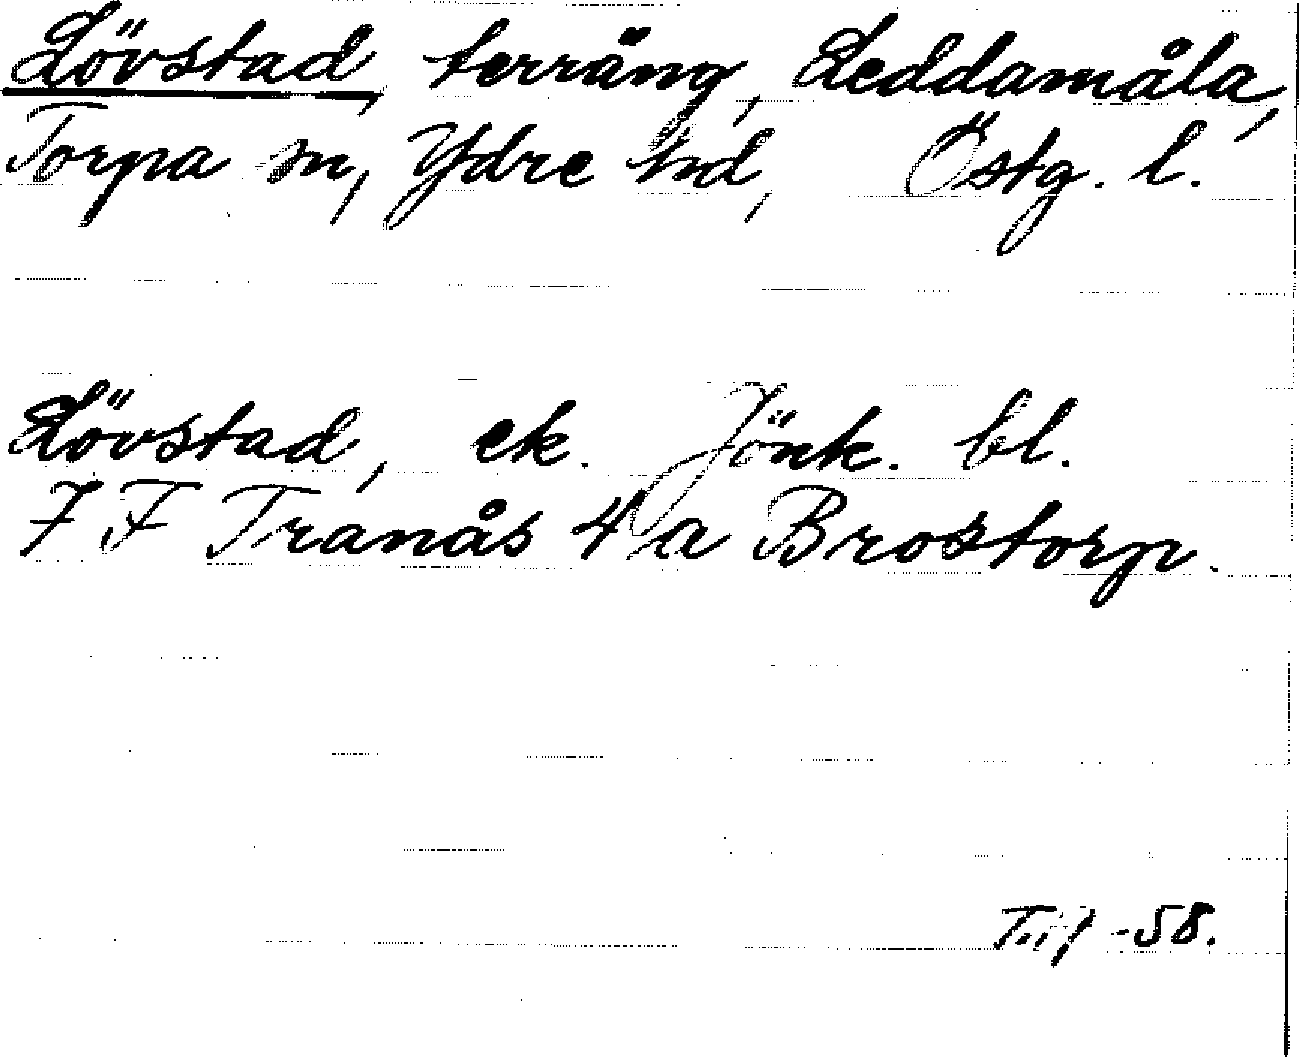 Lövstad, terräng, Leddamåla,
Torpa sn, Ydre hd, Östg. l.
Lövstad, ek. Jönk. bl.
7 F Tranås 4 a Brostorp.
-58.